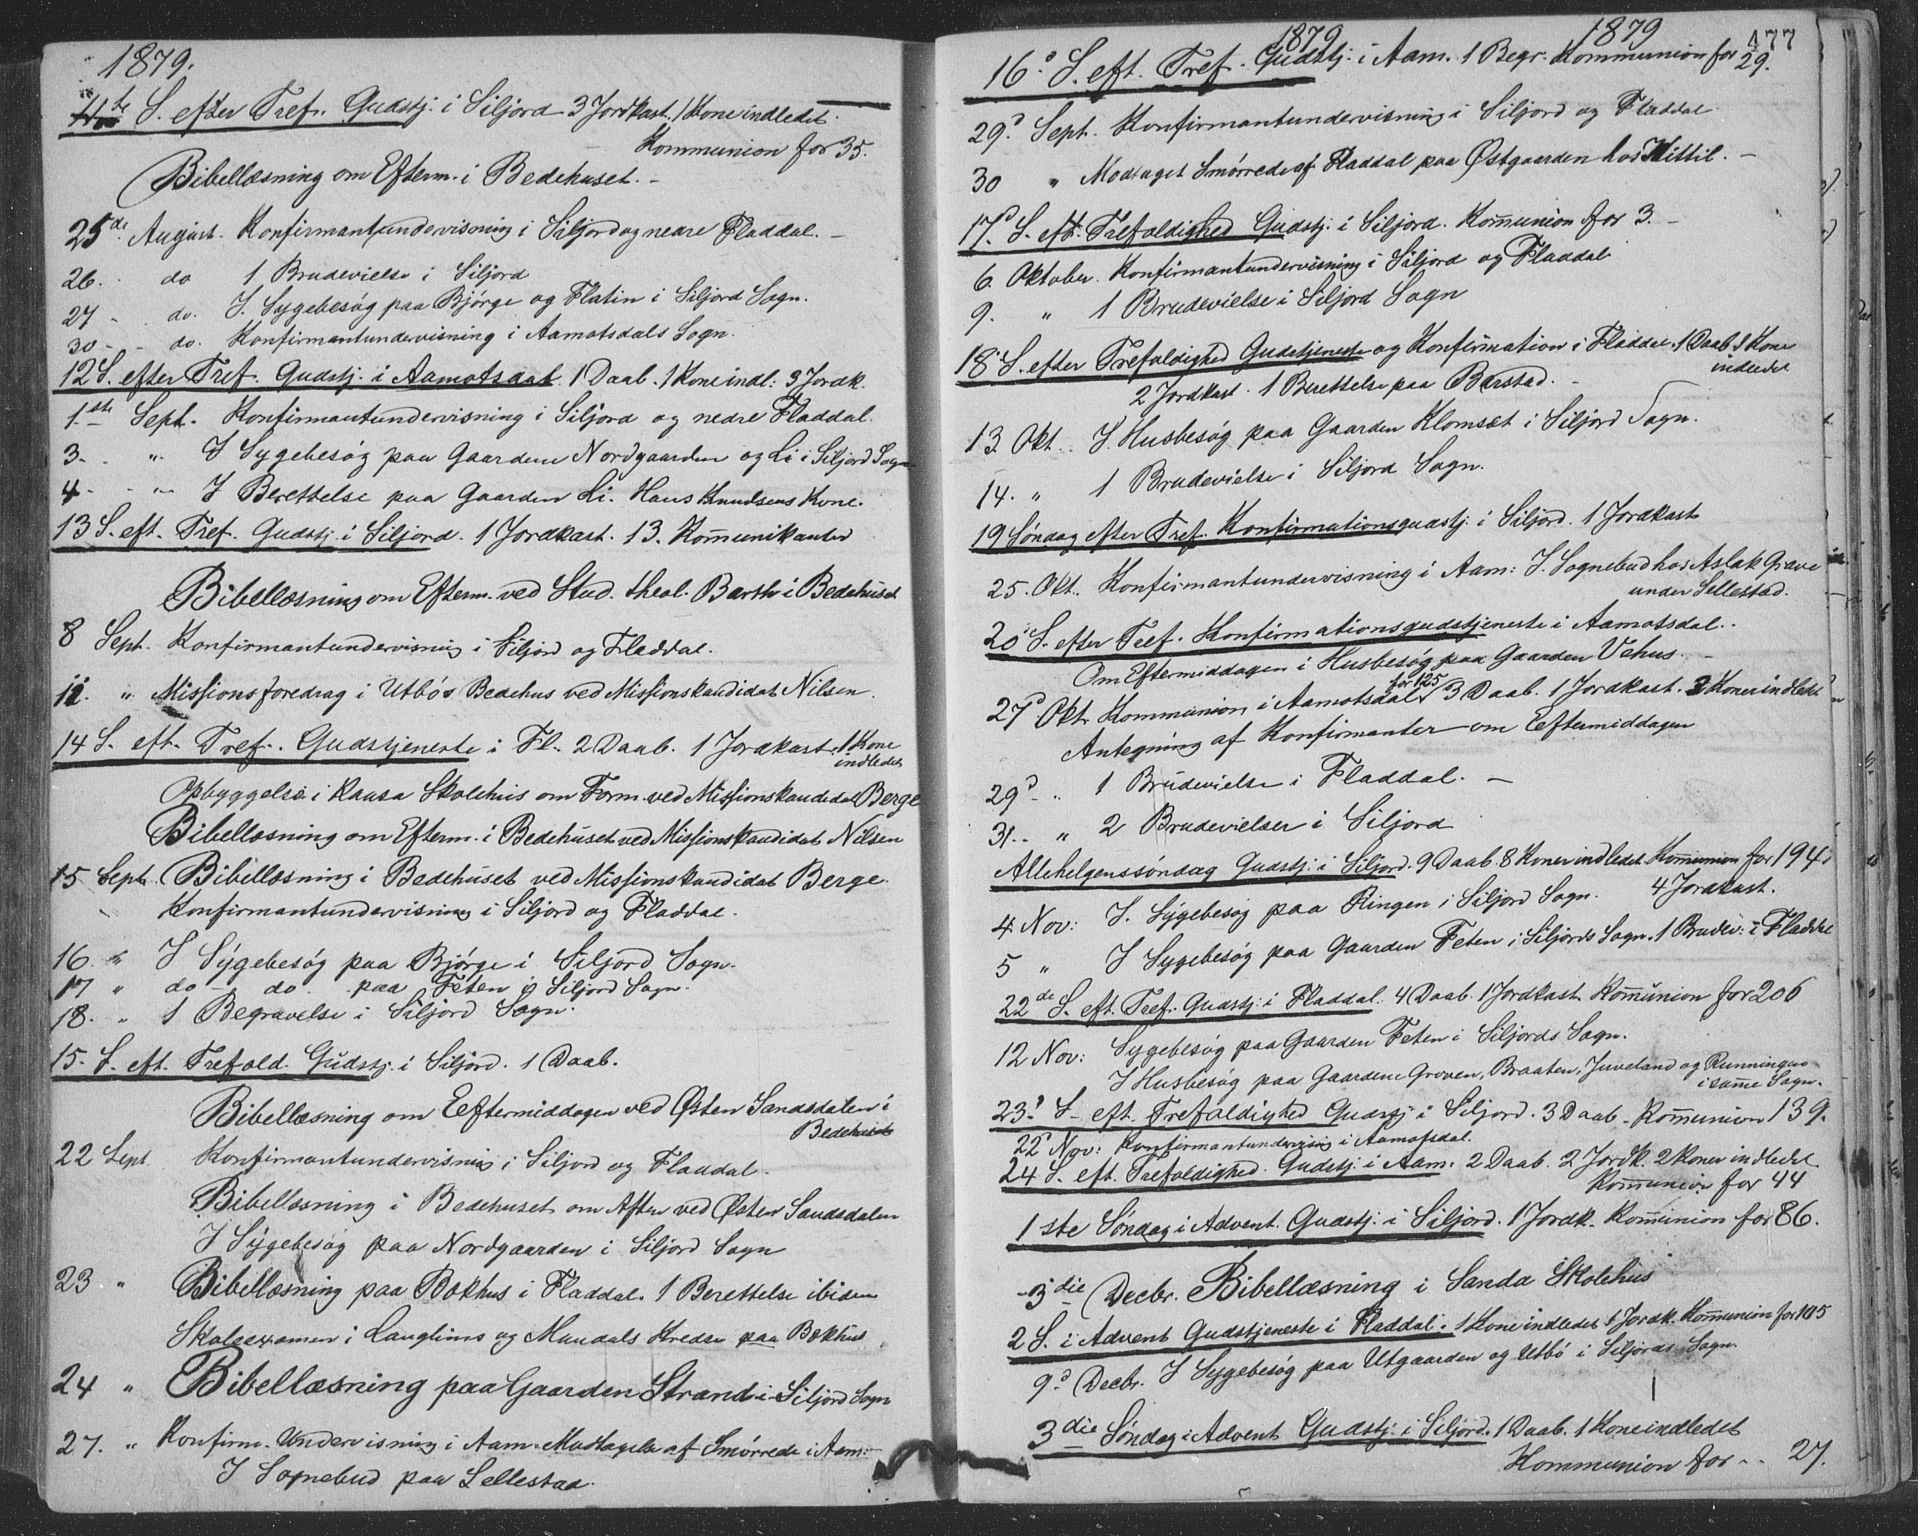 1879.
11te S. efter Tref. Gudstj. i Siljord 3 Jordkast. 1 Kone indledet.
Kommunion for 35.
Bibellæsning om Efterm. i Bedehuset. -
25de August. Konfirmantundervisning i Siljord og nedre Fladdal. -
26. do 1 Brudevielse i Siljord
27 - do. I Sygebesøg paa Bjørge og Flatin i Siljord Sogn.
30 - - do. Konfirmantundervisning i Aamotsdals Sogn.
12 S. efter Tref. Gudstj. i Aamotsdal 1 Daab. 1 Kone indl: 3 Jordk.
1ste Sept. Konfirmantundervisning i Siljord og nedre Fladdal.
3 - " I Sygebesøg paa Gaardene Nordgaarden og Li i Siljord Sogn
4 - " I Berettelse paa Gaarden Li. Hans Knudsens Kone.
13 S. eft. Tref. Gudstj. i Siljord. 1 Jordkast. 13. Kommunikanter
Bibellæsning om Efterm. ved Stud. theol. Barth i Bedehuset
8 Sept. Konfirmantundervisning i Siljord og Fladdal.
11. " Missionsforedrag i Utbös Bedehus ved Missionskandidat Nilsen.
14 S. eft. Tref. Gudstjeneste i Fl. 2 Daab. 1 Jordkast. 1 Kone
indledet
Opbyggelse i Rausa Skolehus om Form. ved Missionskandidat Berge
Bibellæsning om Efterm. i Bedehuset ved Missionskandidat Nilsen
15 Sept. Bibellæsning i Bedehuset ved Missionskandidat Berge.
Konfirmantundervisning i Siljord og Fladdal.
16. " I Sygebesøg paa Bjørge i Siljord Sogn.
17 " do - do. paa Feten i Siljord Sogn.
18. " 1 Begravelse i Siljord Sogn.
15. S. eft. Trefold. Gudstj. i Siljord. 1 Daab.
Bibellæsning om Eftermiddagen ved Østen Sandsdalen i
Bedehuset
22 Sept. Konfirmantundervisning i Siljord og Fladdal.
Bibellæsning i Bedehuset om Aften ved Østen Sandsdalen
I Sygebesøg paa Nordgaarden i Siljord Sogn
23 " Bibellæsning paa Bakhus i Fladdal. 1 Berettelse ibidem
Skoleexamen i Langlims og Mandals Kredse paa Bakhus
24 " Bibellæsning paa Gaarden Strand i Siljord Sogn
27. " Konfirm. Undervisning i Aam. Modtagelse af Smørrede i Aam:
I Sognebud paa Sellestad.
1879 1879 477
16de S. eft. Tref. Gudstj. i Aam. 1 Begr. Kommunion for
29.
29d Sept. Konfirmantundervisning i Siljord og Fladdal
30 " Modtaget Smørrede af Fladdal paa Østgaarden hos Kittil. -
17d S. eft. Trefoldighed Gudstj. i Siljord. Kommunion for 3. -
6. Oktober. Konfirmantundervisning i Siljord og Fladdal
9. " 1 Brudevielse i Siljord Sogn
18 S. efter Trefoldighed Gudstjeneste og Konfirmation i Fladdal. 1 Daab 1 Kone
indledet
2 Jordkast. 1 Berettelse paa Barstad. -
13 Okt. I. Husbesøg paa Gaarden Klomset i Siljord Sogn.
14. " 1 Brudevielse i Siljord Sogn.
19 Søndag efter Tref. Konfirmationsgudstj. i Siljord. 1 Jordkast
25. Okt. Konfirmantundervisning i Aam: I. Sognebud hos Aslak Grave
under Sellestad.
20 S. efter Tref. Konfirmationsgudstjeneste i Aamotsdal.
Om Eftermiddagen i Husbesøg paa Gaarden Vehus. -
27d Okt. Kommunion i Aamotsdal for 125 3 Daab. 1 Jordkast. 3 Koner indledet
Antegning af Konfirmanter om Eftermiddagen
29d - " 1 Brudevielse i Fladdal. -
31. - " 2 Brudevielser i Siljord
Allehelgenssøndag Gudstj. i Siljord. 9 Daab. 8 Koner indledet Kommunion for 194.
4 Jordkast.
4 Nov: I. Sygebesøg paa Ringen i Siljord Sogn.
5 " I Sygebesøg paa Gaarden Feten i Siljords Sogn. 1 Brudev: i Fladdal
22de S. eft. Tref. Gudstj. i Fladdal. 4 Daab. 1 Jordkast. Kommunion for 206
12 Nov: Sygebesøg paa Gaarden Feten i Siljords Sogn.
I Husbesøg paa Gaardene Groven, Braaten, Juveland og Runningen
i samme Sogn.
23d S eft. Trefoldighed Gudstj. i Siljord. 3 Daab. Kommunion 139.
22d Nov: Konfirmantundervisning i Aamotsdal.
24 S. eft. Trefoldighed. Gudstj. i Aam. 2 Daab. 2 Jordk. 2 Koner indledet
Kommunion for 44
1ste Søndag i Advent. Gudstj. i Siljord. 1 Jordk. Kommunion for 86.
3die Decbr. Bibellæsning i Sanda Skolehus
2 S. i Advent Gudstjeneste i Fladdal. 1 Kone indledet 1 Jordk. Kommunion for 105
9d Decbr. I Sygebesøg paa Utgaarden og Utbö i Siljords Sogn.
3die Søndag i Advent Gudstj. i Siljord. 1 Daab. 1 Kone indledet
Kommunion for - . 27.